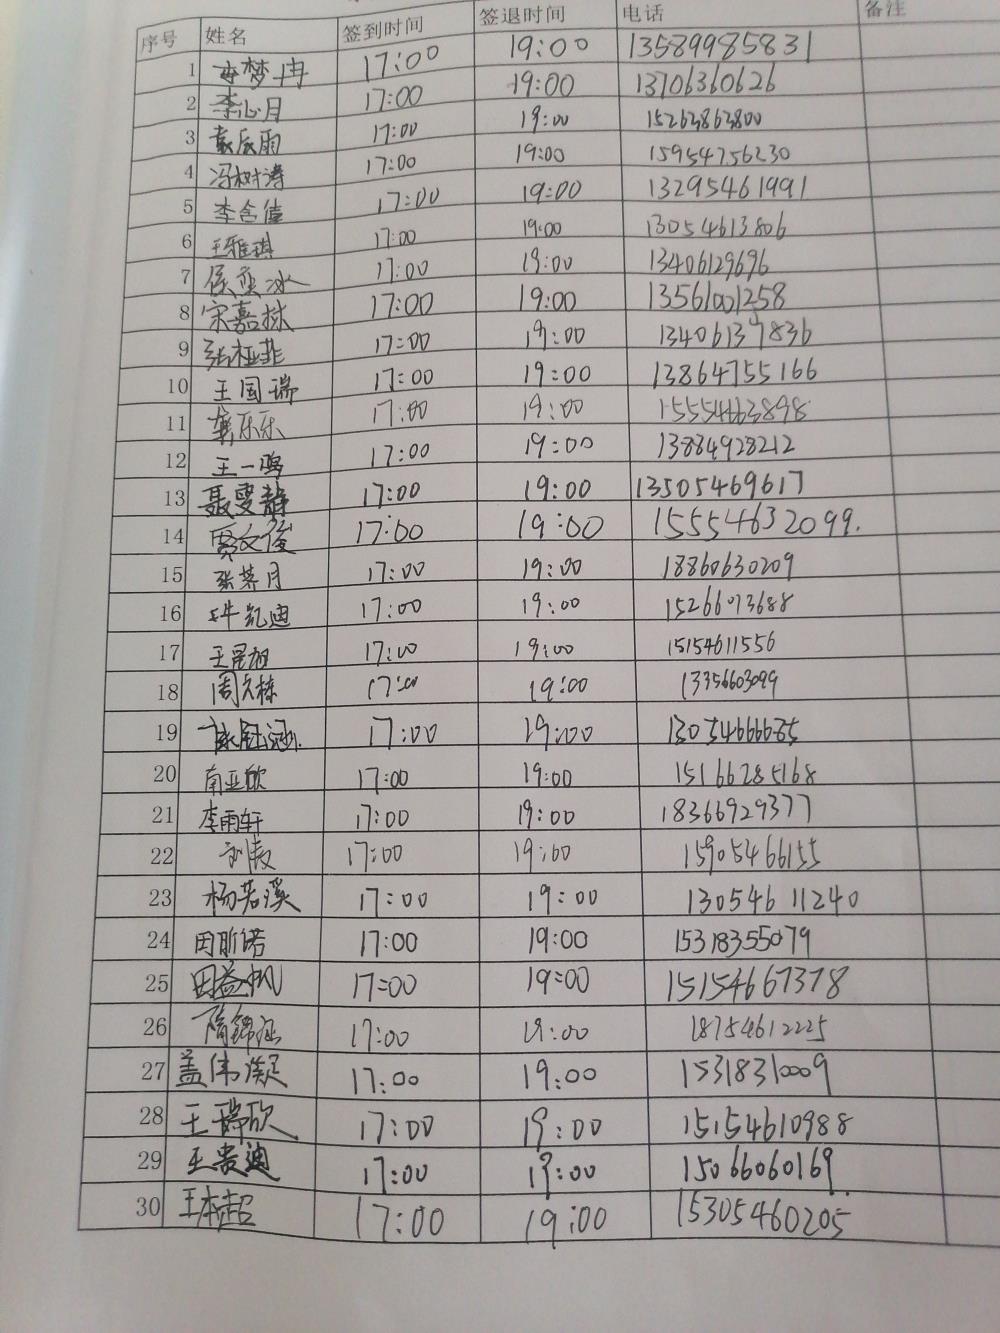 序号 姓名 签到时间 签退时间 电话 备注
1 梦冉 17:00 19:00 13589985831
2 李心月 17:00 19:00 13706360626
3 袁辰雨 17:00 19:00 15263863800
4 冯树涛 17:00 19:00 15954756230
5 李含值 17:00 19:00 13295461991
6 王雅琪 17:00 19:00 13054613806
7 侯 冰 17:00 19:00 13406129696
8 宋嘉 17:00 19:00 13561001258
9 张桠菲 17:00 19:00 13406137836
10 王国瑞 17:00 19:00 13864755166
11 龚乐乐 17:00 19:00 15554663898
12 王一鸣 17:00 19:00 13884928212
13 聂雯静 17:00 19:00 13505469617
14 贾文俊 17:00 19:00 15554632099.
15 张荠月 17:00 19:00 18860630209
16 牛凯迪 17:00 19:00 15266073688
17 王昆祖 17:00 19:00 15154611556
18 周久栋 17:00 19:00 13356603099
19 冠涵 17:00 19:00 13054666685
20 南亚欣 17:00 19:00 15166285168
21 李雨轩 17:00 19:00 18366929377
22 刘 17:00 19:00 15905466155
23 杨若溪 17:00 19:00 13054611240
24 田昕诺 17:00 19:00 15318355079
25 田益帆 17:00 19:00 15154667378
26 隋锦涵 17:00 19:00 18754612225
27 盖伟凝 17:00 19:00 15318310009
28 王瑞欣 17:00 19:00 15154610988
29 王贵迪 17:00 19:00 15066060169.
30 王本超 17:00 19:00 15305460205